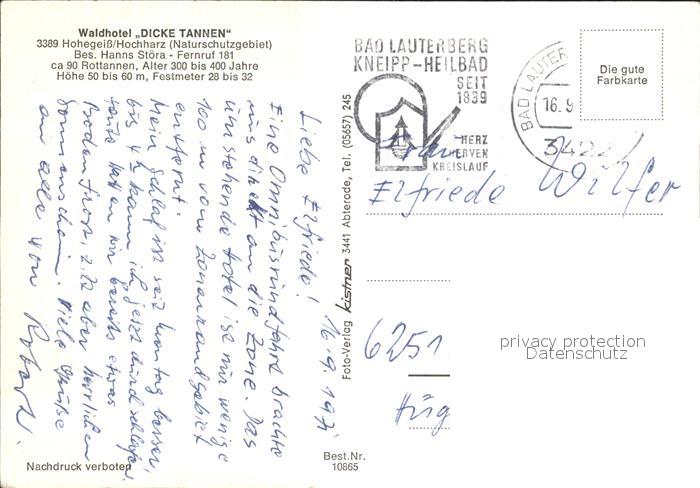 Waldhotel „DICKE TANNEN"
3389 Hohegeiß/Hochharz (Naturschutzgebiet)
Bes. Hanns Störa - Fernruf 181
ca 90 Rottannen, Alter 300 bis 400 Jahre
Höhe 50 bis 60 m, Festmeter 28 bis 32
16.9.197
Liebe Elfriede!
Eine Omnibusrundfahrt brachte
uns direkt an die Zone. Das
umstehende Hotel ist nur wenige
100 m vom Zonenrandgebiet
entfernt.
Mein Schlaf ist seit Montag besser,
bis 4 kann ich jetzt durchschlafen.
Heute hatten wir bereits etwas
Bodenfrost, z.Zt aber herrlichen
Sonnenschein. Viele Grüße
an alle von
Robert.
Nachdruck verboten
Foto-Verlag kistner 3441 Abterode, Tel. (05657) 245
Best.Nr.
10865
BAD LAUTERBERG
KNEIPP-HEILBAD
SEIT
1839
HERZ
NERVEN
KREISLAUF
BAD LAUTER
16.9
3422
Die gute
Farbkarte
Frau
Elfriede Wilfer
6251
privacy protection
Datenschutz